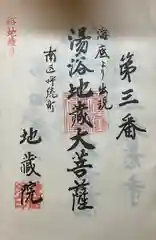 第三番
海底より出現
湯浴地蔵大菩薩
南区呼続町
地蔵院